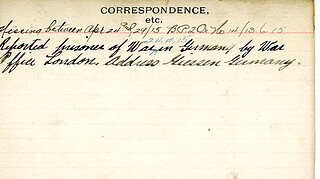 CORRESPONDENCE,
etc.
Missing between Apr 24th & 29/15 B.P.2 O. No 14/13.6.15
24.4.15
Reported prisoner of War in Germany by War
Office London. Address Giessen Germany.